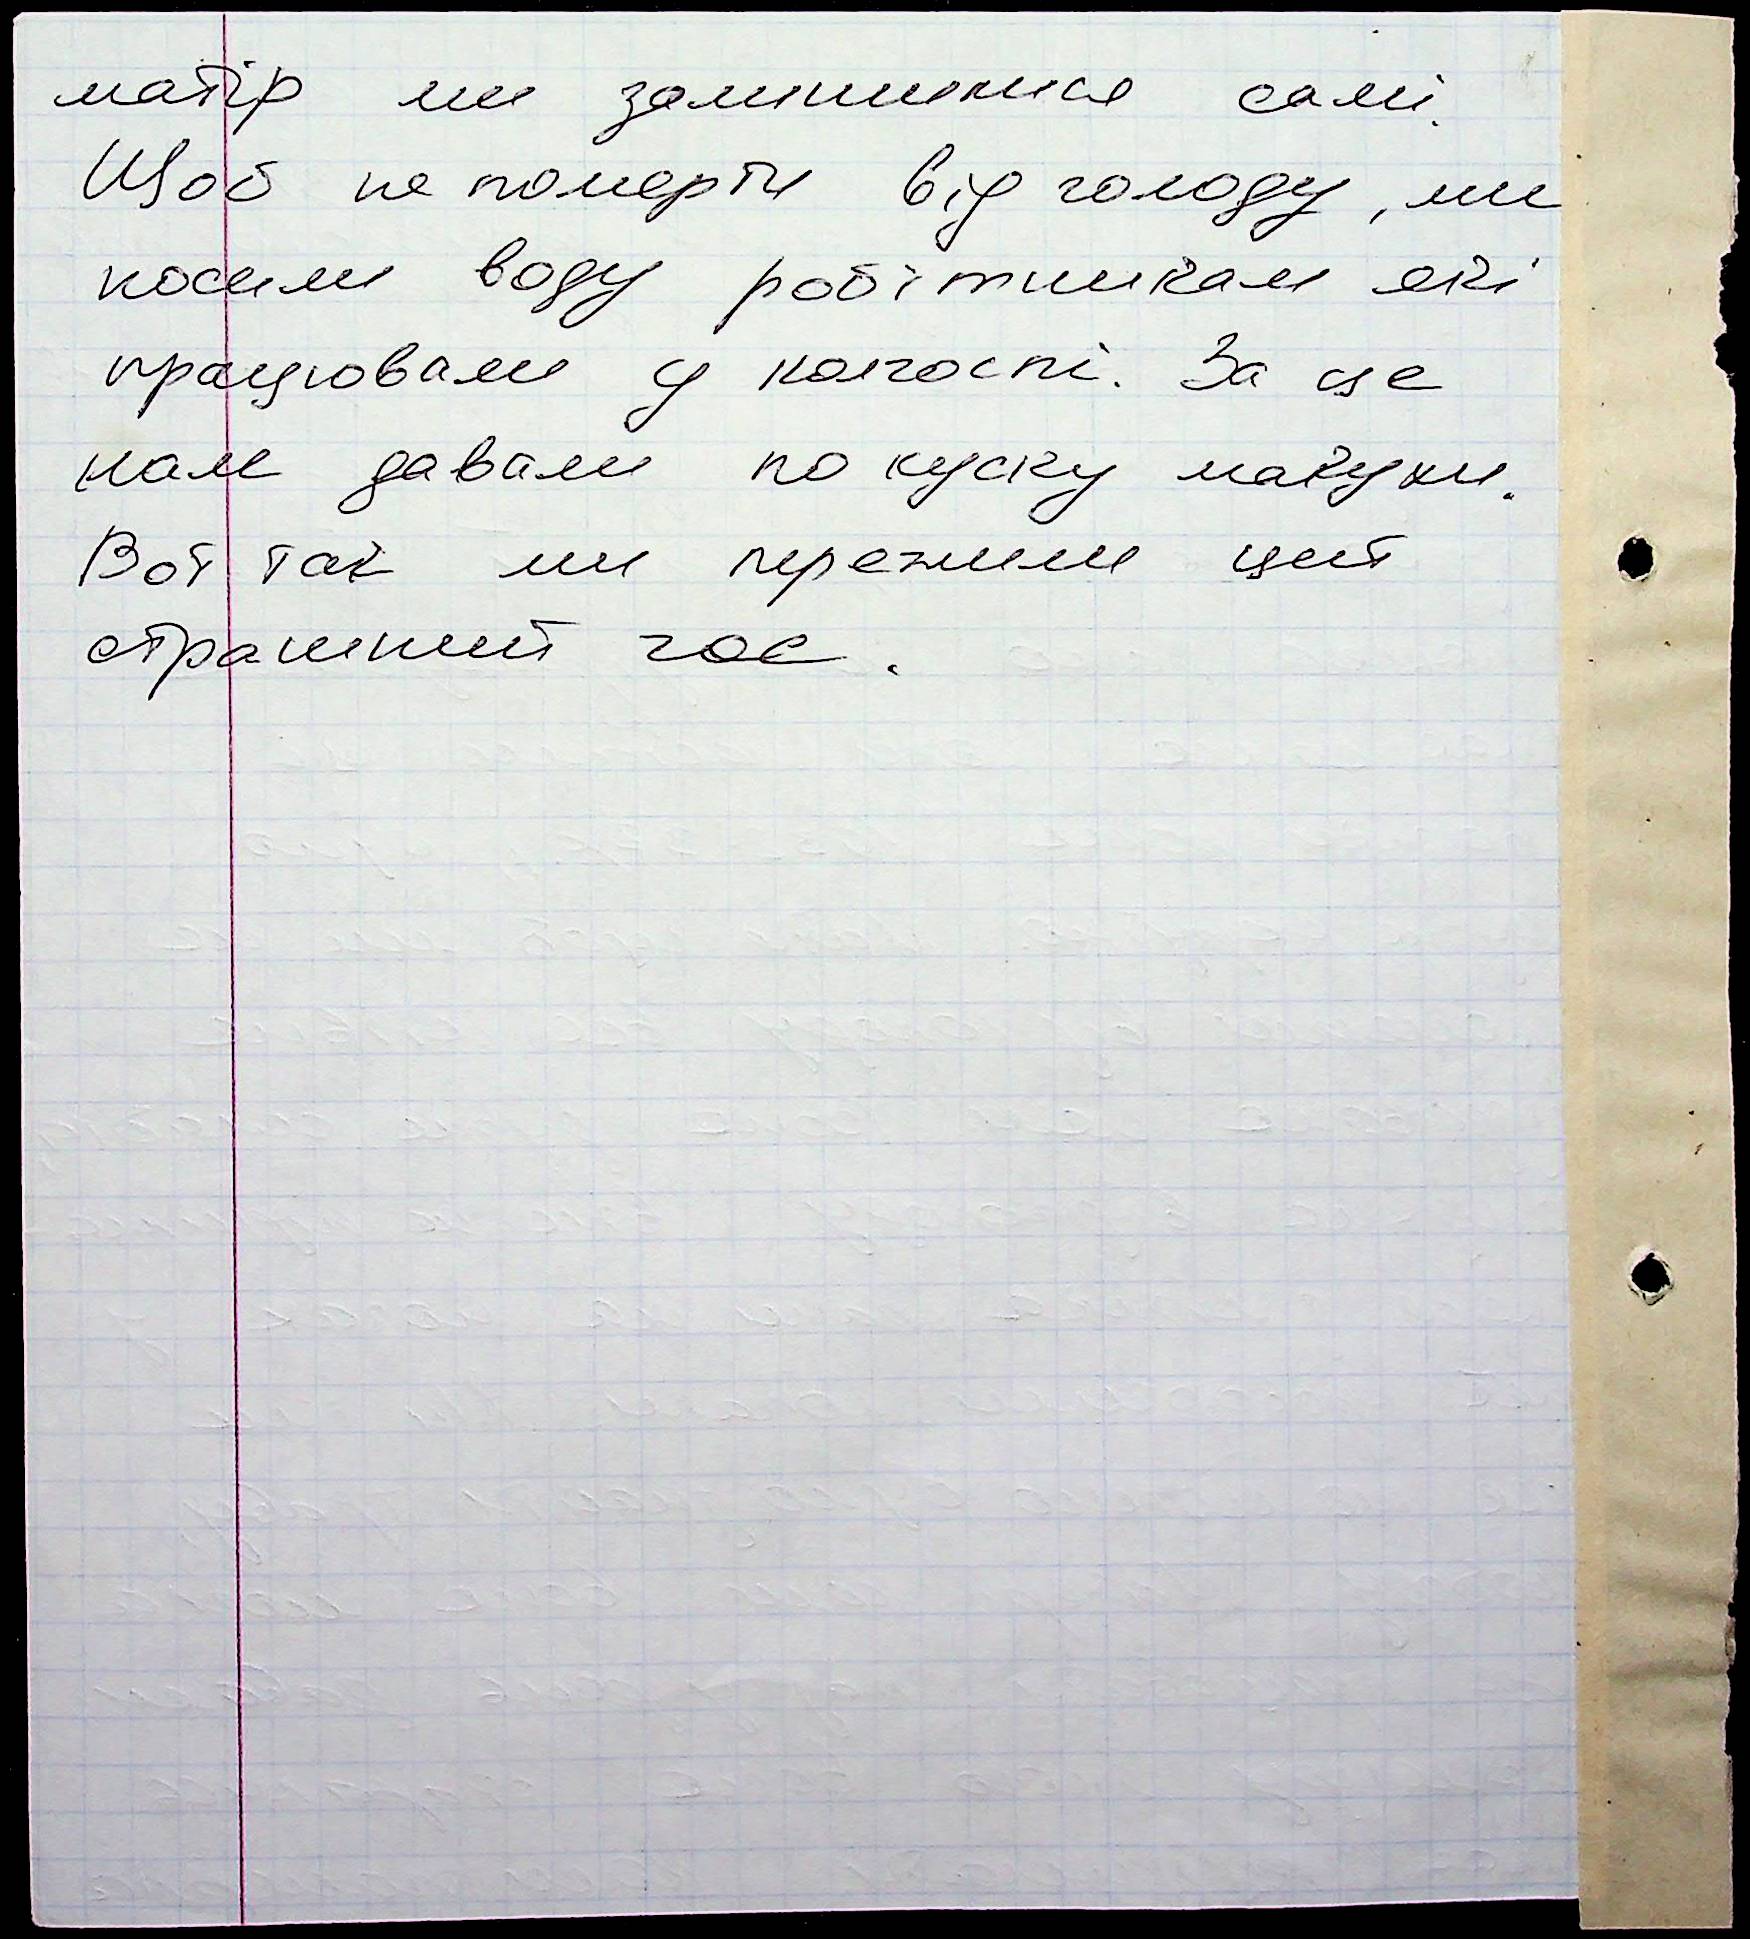 матір ми залишилися самі.
Щоб не померти від голоду, ми
носили воду робітникам які
працювали у колгоспі. За це
нам давали по куску макухи.
Вот так ми пережили цей
страшний час.